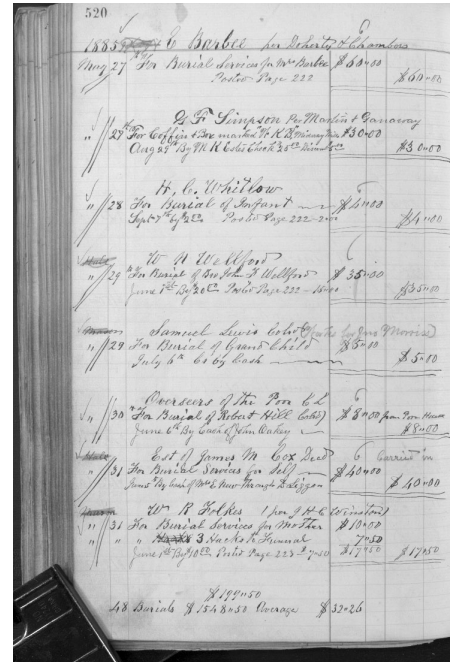 520
1883 E Barbee per Doherty & Chambers
May 27 For Burial Services for Mrs Barbee $60.00
Posted Page 222 $60.00
G F Simpson Per Martin & Danaway
" 27th For Coffin & Box marked $30.00
Aug 29th By M K Estes Check $30.00
H. C. Whitlow
" 28 For Burial of Infant $4.00
Sept 7th By Posted Page 222 $4.00
W N Wellford
" 29 For Burial of Bro John F Wellford $35.00
June 1st By 20.00 Posted Page 222 - 15.00 $35.00
Samuel Lewis Cold
" 29 For Burial of Grand Child $5.00
July 6th Co by Cash $5.00
Overseers of the Poor
" 30 For Burial of Robert Hill Cold $8.00 from Poor House
June 6th By Cash of John Oakey $8.00
Est of James M Cox Decd Carried in
" 31 For Burial Services for Self $40.00
$40.00
Wm R Folkes (per J H C Winston)
" 31 For Burial Services for Mother $10.00
" " 3 Hacks to Funeral 7.50
June 1st By 10.00 Posted Page 223 7.50 $17.50 $17.50
$199.50
48 Burials $1548.50 Average $32.26